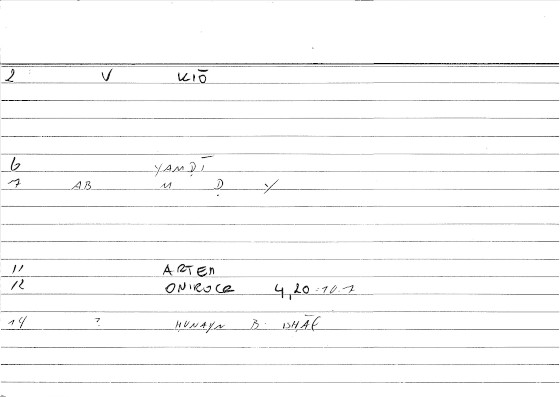 2 V KIŌ
6 YAMDĪ
7 AB M Ḍ Y
11 ARTEM
12 ONIROCR 4,20:10.7
14 ? ḤUNAYN B. ISḤĀḲ